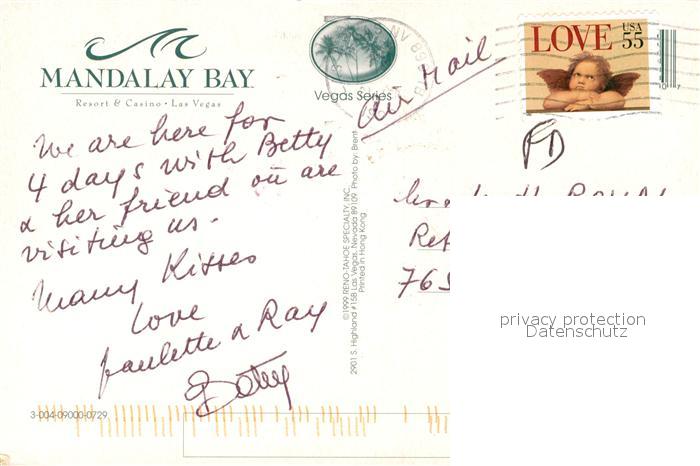 MANDALAY BAY
Resort & Casino • Las Vegas
Vegas Series
Air Mail
LOVE USA 55
We are here for
4 days with Betty
& her friend
visiting us.
Many Kisses
Love
Paulette & Ray
Betty
©1999 RENO-TAHOE SPECIALTY, INC.
2901 S. Highland #15B Las Vegas, Nevada 89109 Photo by: Brent
Printed in Hong Kong.
765
privacy protection
Datenschutz
3-004-09000-0729